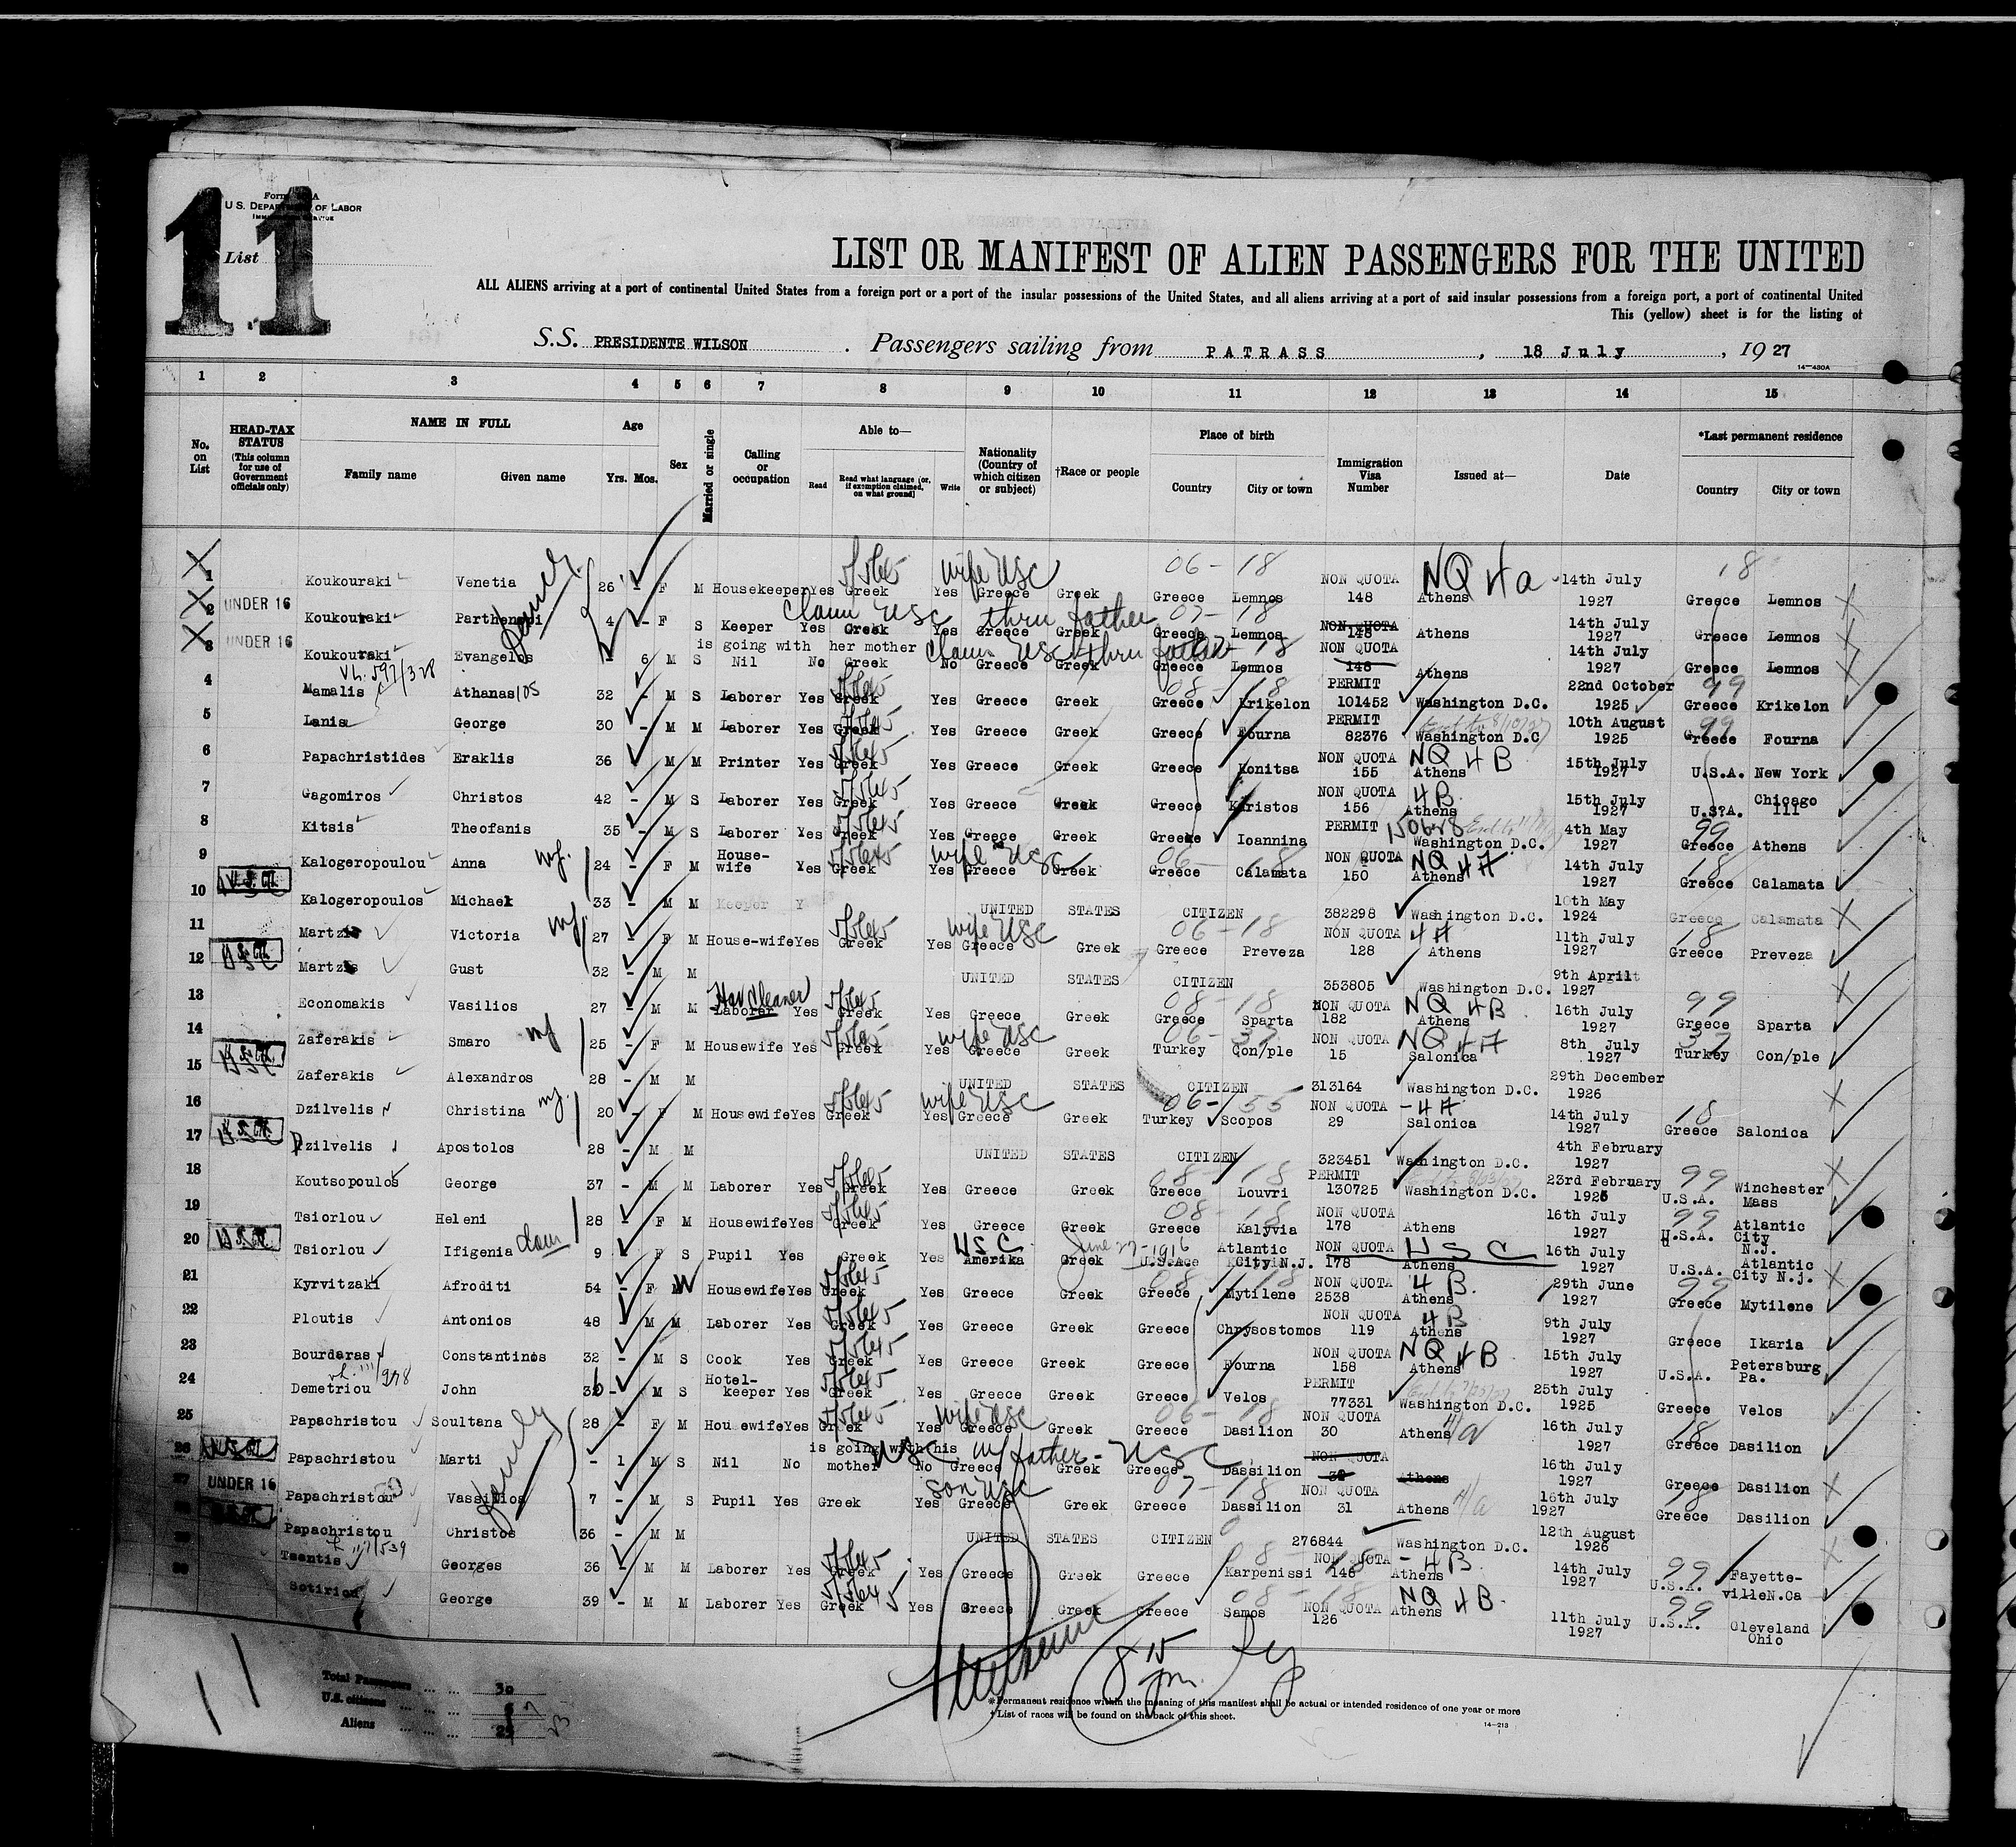 11
Form A
U.S. DEPARTMENT OF LABOR
List
LIST OR MANIFEST OF ALIEN PASSENGERS FOR THE UNITED
ALL ALIENS arriving at a port of continental United States from a foreign port or a port of the insular possessions of the United States, and all aliens arriving at a port of said insular possessions from a foreign port, a port of continental United
This (yellow) sheet is for the listing of
S.S. PRESIDENTE WILSON . Passengers sailing from PATRASS , 18 July , 1927
14-430A
1 2 3 4 5 6 7 8 9 10 11 12 13 14 15
No. on List HEAD-TAX STATUS (This column for use of Government officials only) NAME IN FULL Family name Given name Age Yrs. Mos. Sex Married or single Calling or occupation Able to— Read Read what language (or, if exemption claimed, on what ground) Write Nationality (Country of which citizen or subject) †Race or people Place of birth Country City or town Immigration Visa Number Issued at— Date *Last permanent residence Country City or town
1 Koukouraki Venetia 26 - F M Housekeeper Yes Greek Yes wife USC Greece Greek 06-18 Greece Lemnos NON QUOTA 148 NQ 4a Athens 14th July 1927 18 Greece Lemnos
2 UNDER 16 Koukouraki 4 - F S Keeper Yes Greek Yes claim USC thru father Greece Greek 07-18 Greece Lemnos NON QUOTA 148 Athens 14th July 1927 Greece Lemnos
is going with her mother
3 UNDER 16 Koukouraki Evangelos - 6 M S Nil No Greek No claim USC thru father Greece Greek Greece Lemnos NON QUOTA 148 Athens 14th July 1927 Greece Lemnos
4 Mamalis Athanasios 32 - M S Laborer Yes Greek Yes Greece Greek 08-18 Greece Krikelon PERMIT 101452 Washington D.C. 22nd October 1925 99 Greece Krikelon
5 Lanis George 30 - M M Laborer Yes Greek Yes Greece Greek Greece Fourna PERMIT 82376 Washington D.C 10th August 1925 99 Greece Fourna
6 Papachristides Eraklis 36 M M Printer Yes Greek Yes Greece Greek Greece Konitsa NON QUOTA 155 NQ 4B Athens 15th July 1927 U.S.A. New York
7 Gagomiros Christos 42 - M S Laborer Yes Greek Yes Greece Greek Greece Karistos NON QUOTA 156 4B Athens 15th July 1927 U.S.A. Chicago Ill
8 Kitsis Theofanis 35 - M S Laborer Yes Greek Yes Greece Greek Greece Ioannina PERMIT 150628 Washington D.C. 4th May 1927 99 Greece Athens
9 Kalogeropoulou Anna 24 - F M House-wife Yes Greek Yes wife USC Greece Greek 06-18 Greece Calamata NON QUOTA 150 NQ 4A Athens 14th July 1927 18 Greece Calamata
10 Kalogeropoulos Michael 33 - M M UNITED STATES CITIZEN 382298 Washington D.C. 10th May 1924 Greece Calamata
11 Victoria 27 - F M House-wife Yes Greek Yes wife USC Greece Greek 06-18 Greece Preveza NON QUOTA 128 4A Athens 11th July 1927 18 Greece Preveza
12 Gust 32 - M M UNITED STATES CITIZEN 353805 Washington D.C. 9th April 1927
13 Economakis Vasilios 27 - M M Hat cleaner Laborer Yes Greek Yes Greece Greek 08-18 Greece Sparta NON QUOTA 182 NQ 4B Athens 16th July 1927 99 Greece Sparta
14 Zaferakis Smaro 25 - F M Housewife Yes Greek Yes wife USC Greece Greek 06-37 Turkey Con/ple NON QUOTA 15 NQ 4A Salonica 8th July 1927 37 Turkey Con/ple
15 Zaferakis Alexandros 28 - M M UNITED STATES CITIZEN 313164 Washington D.C. 29th December 1926
16 Dzilvelis Christina 20 - F M Housewife Yes Greek Yes wife USC Greece Greek 06-55 Turkey Scopos NON QUOTA 29 -4A Salonica 14th July 1927 18 Greece Salonica
17 Dzilvelis Apostolos 28 - M M UNITED STATES CITIZEN 323451 Washington D.C. 4th February 1927
18 Koutsopoulos George 37 - M M Laborer Yes Greek Yes Greece Greek 08-18 Greece Louvri PERMIT 130725 Washington D.C. 23rd February 1926 99 U.S.A. Winchester Mass
19 Tsiorlou Heleni 28 - F M Housewife Yes Greek Yes Greece Greek 08-18 Greece Kalyvia NON QUOTA 178 Athens 16th July 1927 99 U.S.A. Atlantic City N.J.
20 Tsiorlou Ifigenia 9 - F S Pupil Yes Greek Yes USC Amerika Greek June 27-1916 Atlantic City N.J. NON QUOTA 178 USC Athens 16th July 1927 U.S.A. Atlantic City N.j.
21 Kyrvitzaki Afroditi 54 - F W Housewife Yes Greek Yes Greece Greek 08-18 Greece Mytilene NON QUOTA 2538 4B. Athens 29th June 1927 99 Greece Mytilene
22 Ploutis Antonios 48 M M Laborer Yes Greek Yes Greece Greek Greece Chrysostomos NON QUOTA 119 4B Athens 9th July 1927 Greece Ikaria
23 Bourdaras Constantinos 32 - M S Cook Yes Greek Yes Greece Greek Greece Fourna NON QUOTA 158 NQ 4B Athens 15th July 1927 U.S.A. Petersburg Pa.
24 Demetriou John 36 - M S Hotel-keeper Yes Greek Yes Greece Greek Greece Velos PERMIT 77331 Washington D.C. 25th July 1925 Greece Velos
25 Papachristou Soultana 28 - F M Housewife Yes Greek Yes wife USC Greece Greek 06-18 Greece Dasilion NON QUOTA 30 Athens 4/a 16th July 1927 18 Greece Dasilion
26 Papachristou Marti - 1 M S Nil No is going with his mother No USC w/father - USC Greece Greek Greece Dassilion NON QUOTA 30 Athens 16th July 1927 Greece Dasilion
27 UNDER 16 Papachristou Vassilios 7 - M S Pupil Yes Greek Yes son USC Greece Greek 07-18 Greece Dassilion NON QUOTA 31 Athens 4/a 16th July 1927 18 Greece Dasilion
Papachristou Christos 36 - M M UNITED STATES CITIZEN 276844 Washington D.C. 12th August 1926
Tsentis Georges 36 - M M Laborer Yes Greek Yes Greece Greek 08-18 Greece Karpenissi NON QUOTA 146 -4B. Athens 14th July 1927 99 U.S.A. Fayette-villeN.Ca
Sotiriou George 39 - M M Laborer Yes Greek Yes Greece Greek 08-18 Greece Samos NON QUOTA 126 NQ 4B. Athens 11th July 1927 99 U.S.A. Cleveland Ohio
11
Total Passengers ... ... 30
U.S. citizens ... ... 7
Aliens ... ... 23
8 15 pm.
*Permanent residence within the meaning of this manifest shall be actual or intended residence of one year or more
†List of races will be found on the back of this sheet.
14-213